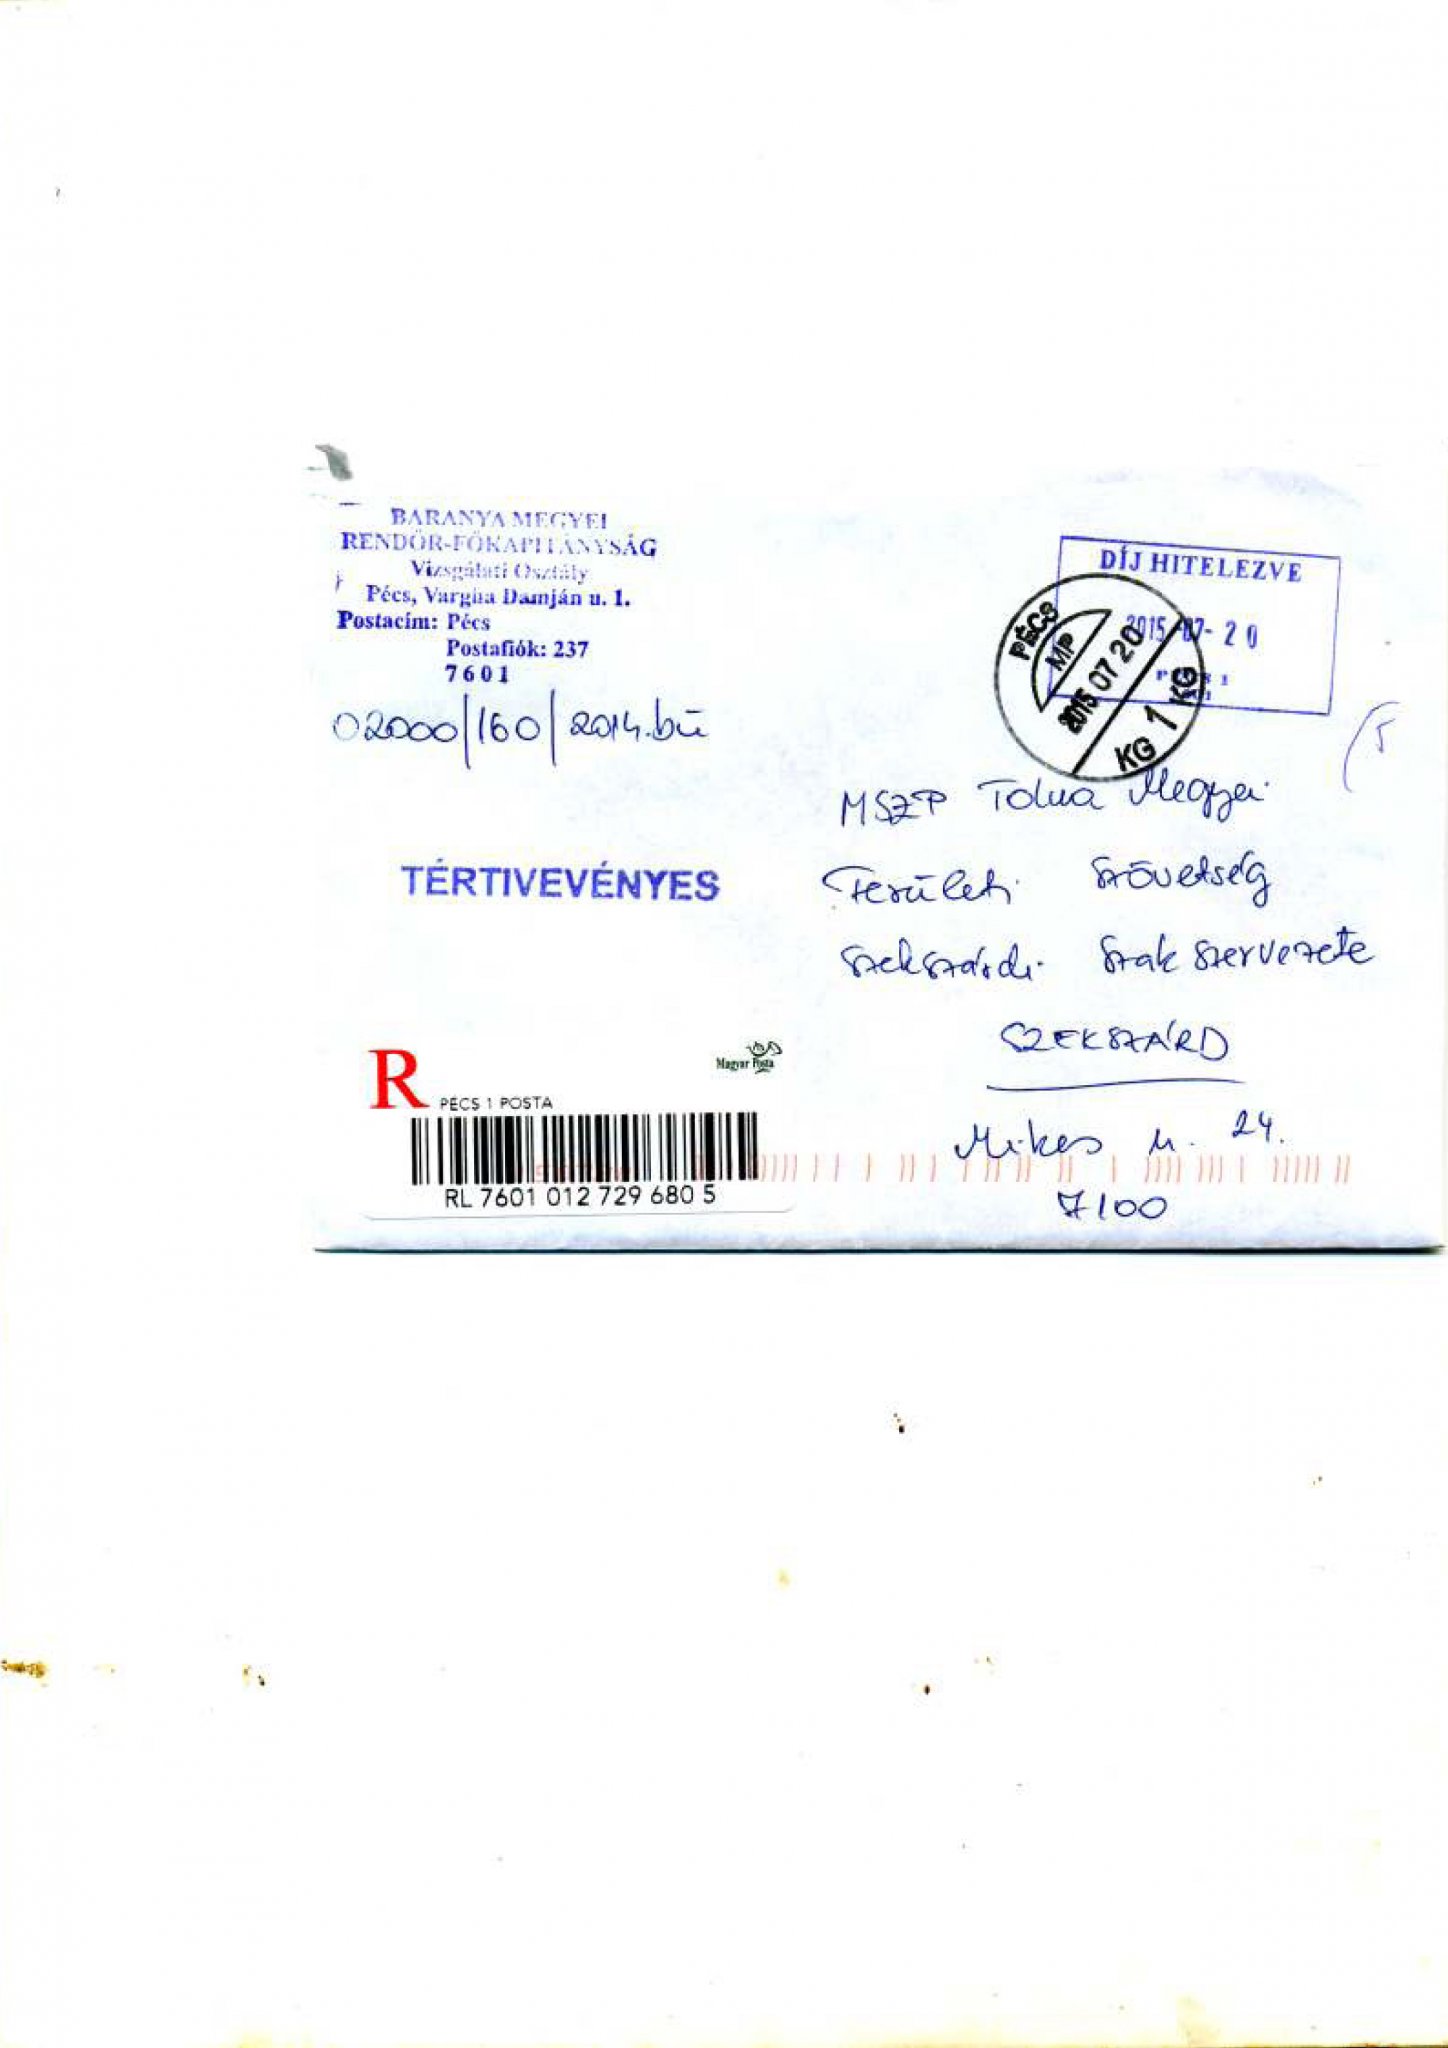 BARANYA MEGYEI
RENDŐR-FŐKAPITÁNYSÁG
Vizsgálati Osztály
Pécs, Vargha Damján u. 1.
Postacím: Pécs
Postafiók: 237
7601
02000/160/2014.bü
DÍJ HITELEZVE
2015-07-20
PÉCS
MP
2015 07 20
KG 1 KG
MSZP Tolna Megyei
Területi Szövetség
Szekszárdi Szakszervezete
SZEKSZÁRD
Mikes u. 24.
7100
TÉRTIVEVÉNYES
R
PÉCS 1 POSTA
Magyar Posta
RL 7601 012 729 680 5